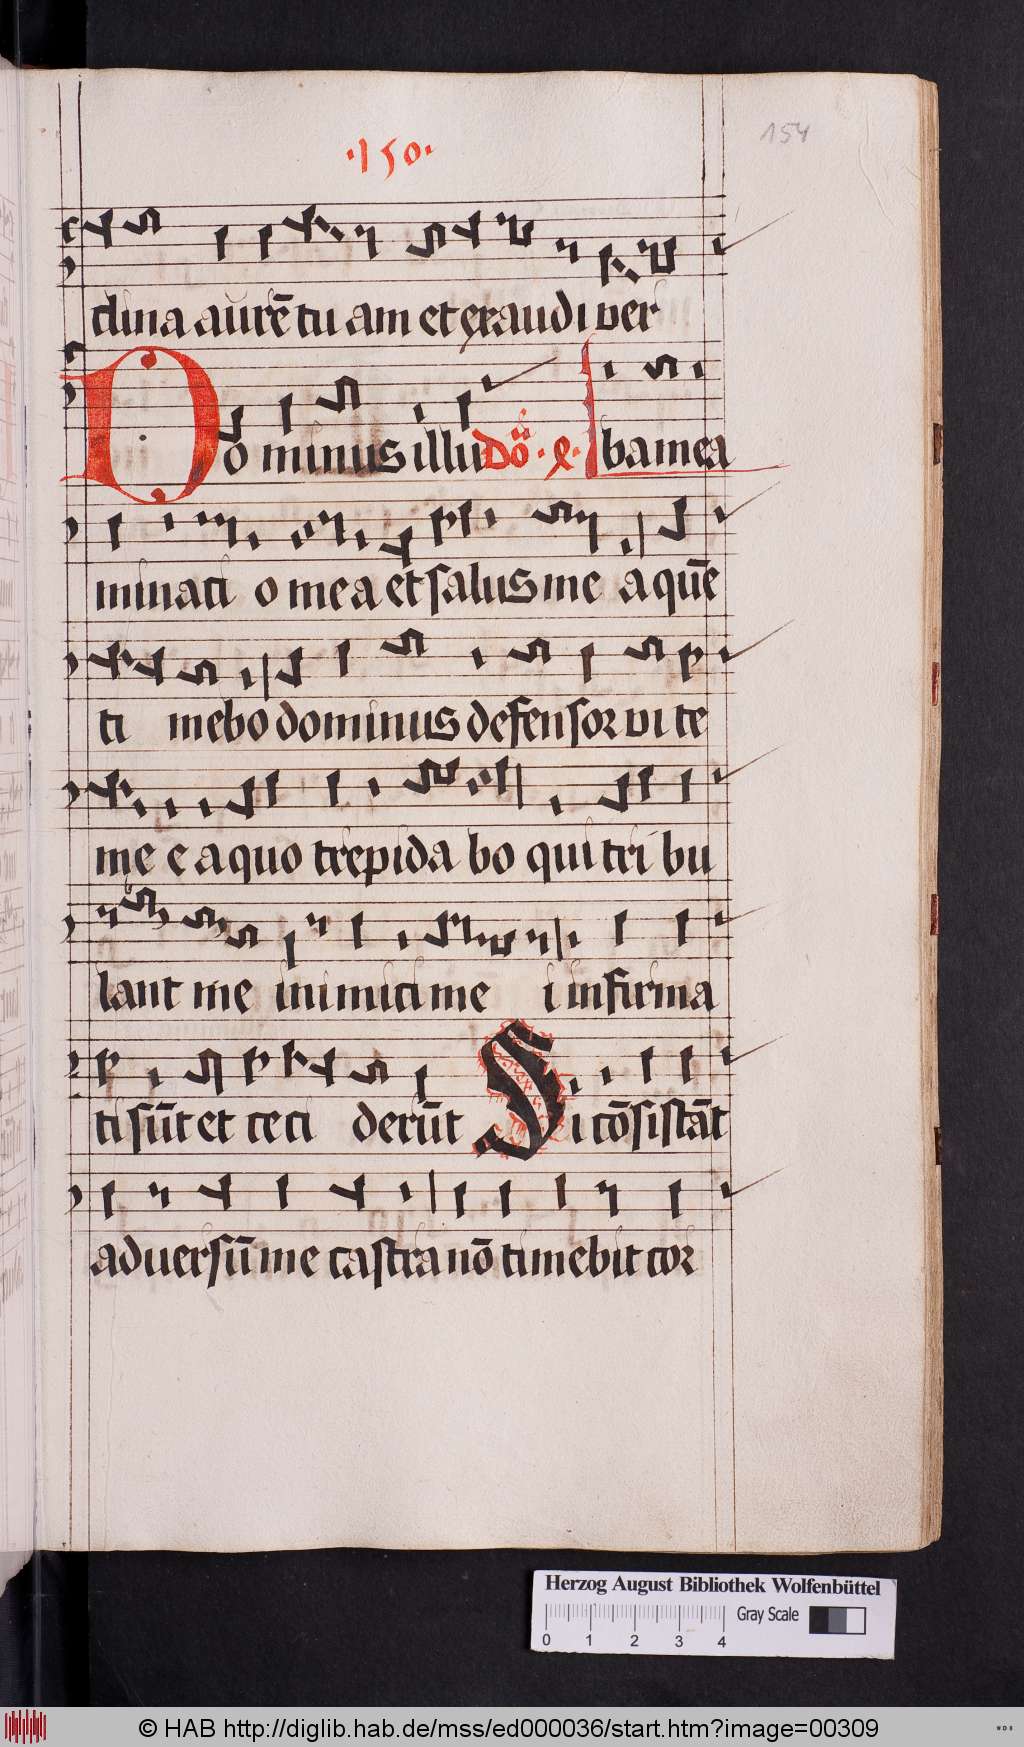 ·150·
154
clina aurē tu am et exaudi ver
Dominus illu Dō ba mea
minati o mea et salus me a quē
ti mebo dominus defensor vi te
me e a quo trepida bo qui tri bu
lant me inimici me i infirma
ti sūt et ceci derūt Si cōsistāt
aduersū me castra nō timebit cor
Herzog August Bibliothek Wolfenbüttel
Gray Scale
0 1 2 3 4
© HAB http://diglib.hab.de/mss/ed000036/start.htm?image=00309